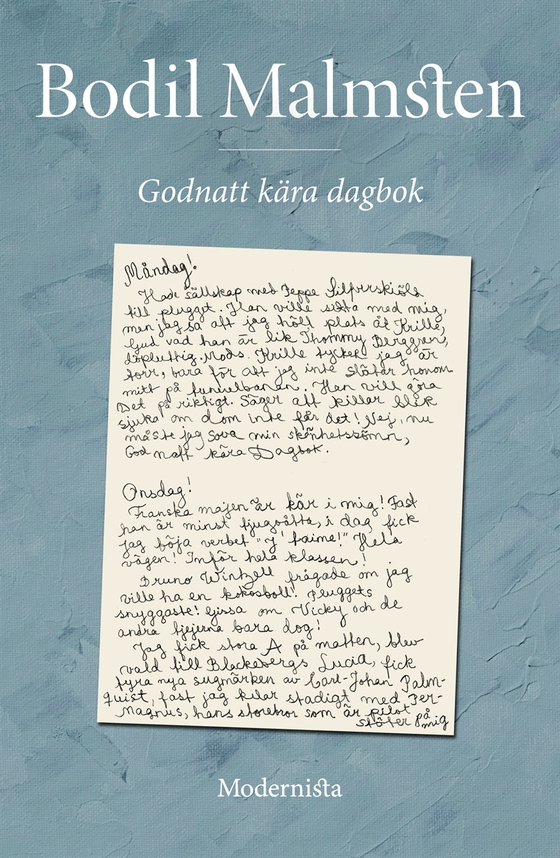 Bodil Malmsten
Godnatt kära dagbok
Måndag!
Hade sällskap med Jeppe Silfverskiöld
till plugget. Han ville sitta med mig,
men jag sa att jag höll plats åt Krille,
Gud vad han är lik Thommy Berggren,
döpluttig. Mods. Krille tycker jag är
torr, bara för att jag inte släfar honom
mitt på tunnelbanan. Han vill göra
Det på riktigt. Säger att killar blir
sjuka om dom inte får det! Nej, nu
måste jag sova min skönhetssömn,
God natt kära Dagbok.
Onsdag!
Franska majen är kär i mig! Fast
han är minst tjugoåtta, i dag fick
jag böja verbet "J'taime!" Hela
vägen! Inför hela klassen!
Bruno Wintzell frågade om jag
ville ha en kokosboll! Pluggets
snyggaste! Gissa om Vicky och de
andra tjejerna bara dog!
Jag fick stora A på matten, blev
vald till Blackebergs Lucia, fick
fyra nya sugmärken av Carl-Johan Palm-
quist, fast jag kilar stadigt med Per-
Magnus, hans storebror som är pilot
stöter på
mig
Modernista